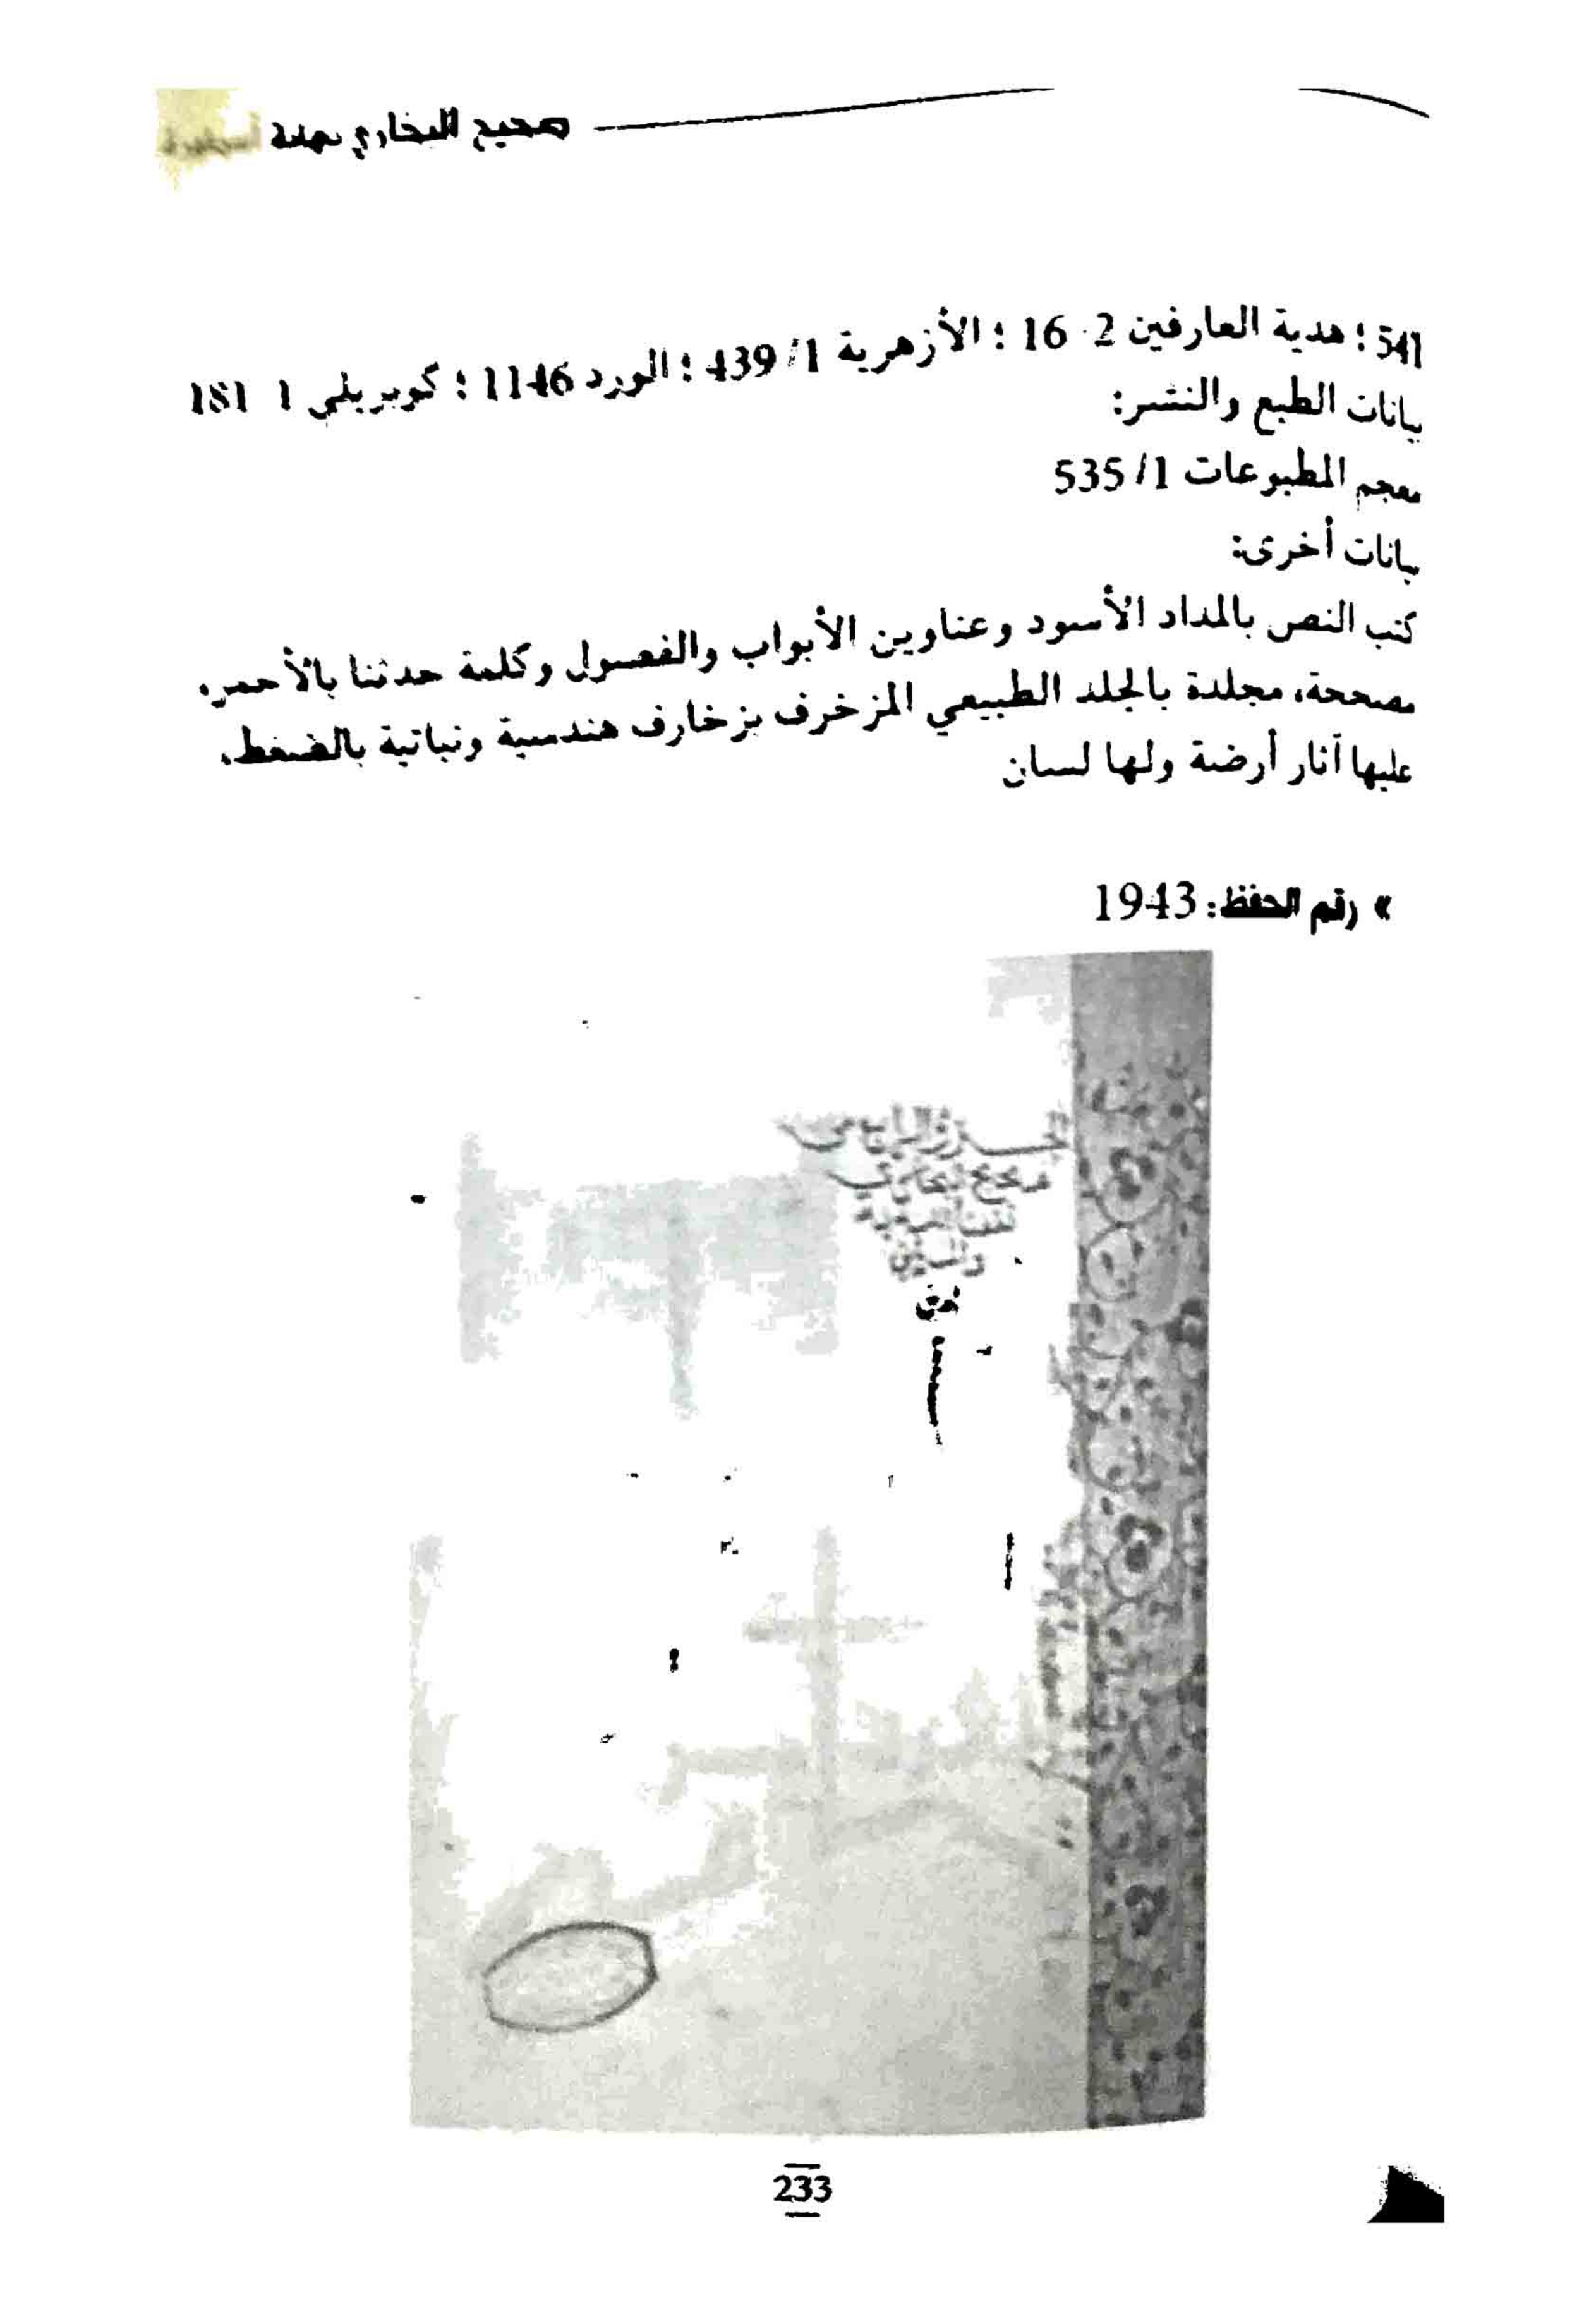 صحيح البخاري نهاية أسطورة
541 ؛ هدية العارفين 2 16 ؛ الأزهرية 1/ 439 ؛ الورد 1146 ؛ كوبريلي 1 181
بيانات الطبع والنشر:
معجم المطبوعات 1/ 535
بيانات أخرى:
كتب النص بالمداد الأسود وعناوين الأبواب والفصول وكلمة حدثنا بالأحمر،
مصححة، مجلدة بالجلد الطبيعي المزخرف بزخارف هندسية ونباتية بالضغط،
عليها آثار أرضة ولها لسان
» رقم الحفظ: 1943
الجزؤ الرابع من
صحيح البخاري
233